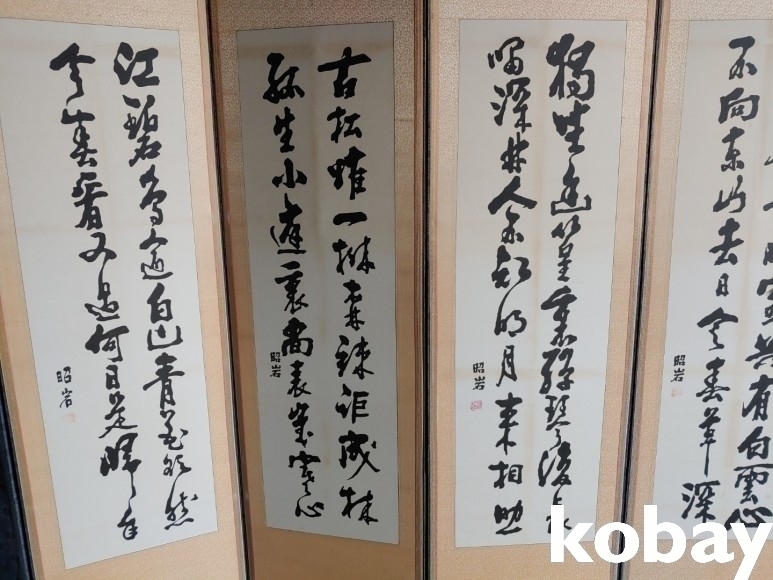 共有白雲心
不向東山去日令春草深
昭岩
獨坐幽篁裏彈琴復長
嘯深林人不知明月來相照
昭岩
古松雖一株森疎詎成林
生小裏尚表歲寒心
昭岩
江碧鳥逾白山青花欲然
今春看又過何日是歸年
昭岩
kobay